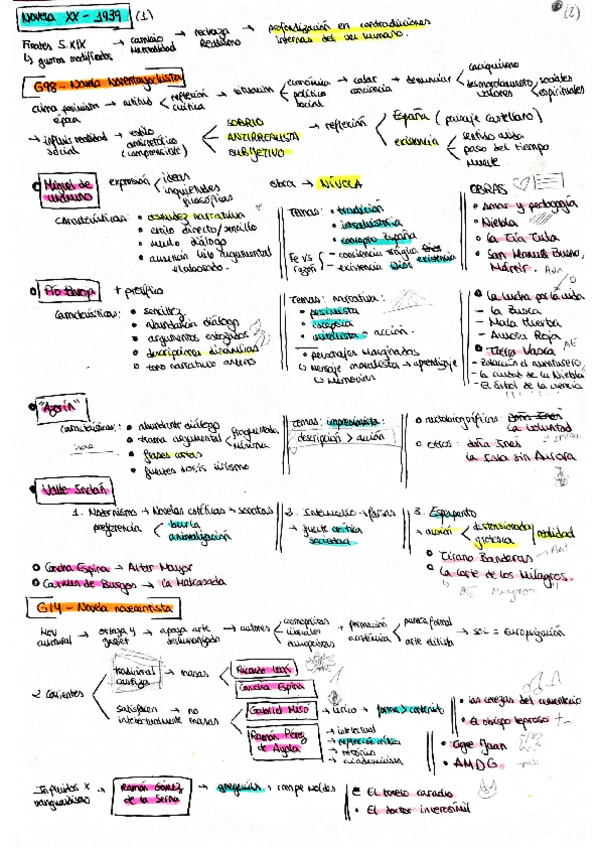 Novela XX - 1939 (1)
(2)
Finales S.XIX → cambio mentalidad → rechaza Realismo → profundización en contradicciones internas del ser humano.
↳ gustos modificados
G98 - Novela Noventayochista
clima pesimista época → actitud reflexión crítica → situación económica política social → calar conciencia → denunciar caciquismo desmoronamiento valores sociales espirituales
→ influjo realidad social → estilo antirretórico (comprensible) SOBRIO ANTIRREALISTA SUBJETIVO → reflexión España (paisaje castellano)
existencia sentido vida paso del tiempo muerte
Miguel de Unamuno expresión ideas inquietudes filosóficas obra → NIVOLA
Características: • desnudez narrativa
• estilo directo/sencillo
• mucho diálogo
• ausencia hilo argumental elaborado.
Temas: • tradición
• intrahistoria
• concepto España
Fe vs razón - conciencia trágica existencia
- existencia Dios
OBRAS
• Amor y pedagogía
• Niebla
• La Tía Tula
• San Manuel Bueno, Mártir.
Pío Baroja + prolífico
Características: • sencillez
• abundancia diálogo
• argumentos
• descripciones dinámicas
• tono narrativo
Temas: narrativa:
• pesimista
• acción.
• personajes marginados
↳ mensaje moralista → aprendizaje
↳ memorias
La lucha por la vida
- La Busca
- Mala Hierba
- Aurora Roja
Tierra Vasca
- Zalacaín el aventurero
- La ciudad de la Niebla
- El árbol de la ciencia
"Azorín"
Características: • abundante diálogo
• trama argumental fragmentada mínima
• frases cortas
• fuertes dosis lirismo
Temas: impresionista:
descripción > acción
autobiográficos: La Voluntad
otros: Doña Inés
La Isla sin Aurora
Valle Inclán
1. Modernismo → Novelas estéticas → sonatas
preferencia burla animalización
2. Intermedio → farsas
→ fuerte crítica sociedad
3. Esperpento
→ visión distorsionada grotesca realidad
Tirano Banderas
La Corte de los Milagros.
Concha Espina → Altar Mayor
Carmen de Burgos → La Malcasada
G14 - Novela novecentista
Nov cultural → Ortega y Gasset → apoya arte deshumanizado → autores + formación académica pureza formal arte elitista → sol = Europeización
2 Corrientes
tradicional castiza → masas Ricardo León
Concha Espina
satisfacen intelectualmente → no masas Gabriel Miró → lírico + forma > contenido
• Las cerezas del cementerio
• El obispo leproso
Ramón Pérez de Ayala → intelectual
→ reflexión crítica
→ retórico
→ academicismo
• Tigre Juan
• AMDG
Influidos x vanguardismo → Ramón Gómez de la Serna → greguerías, rompe moldes
El torero Caracho
El doctor inverosímil